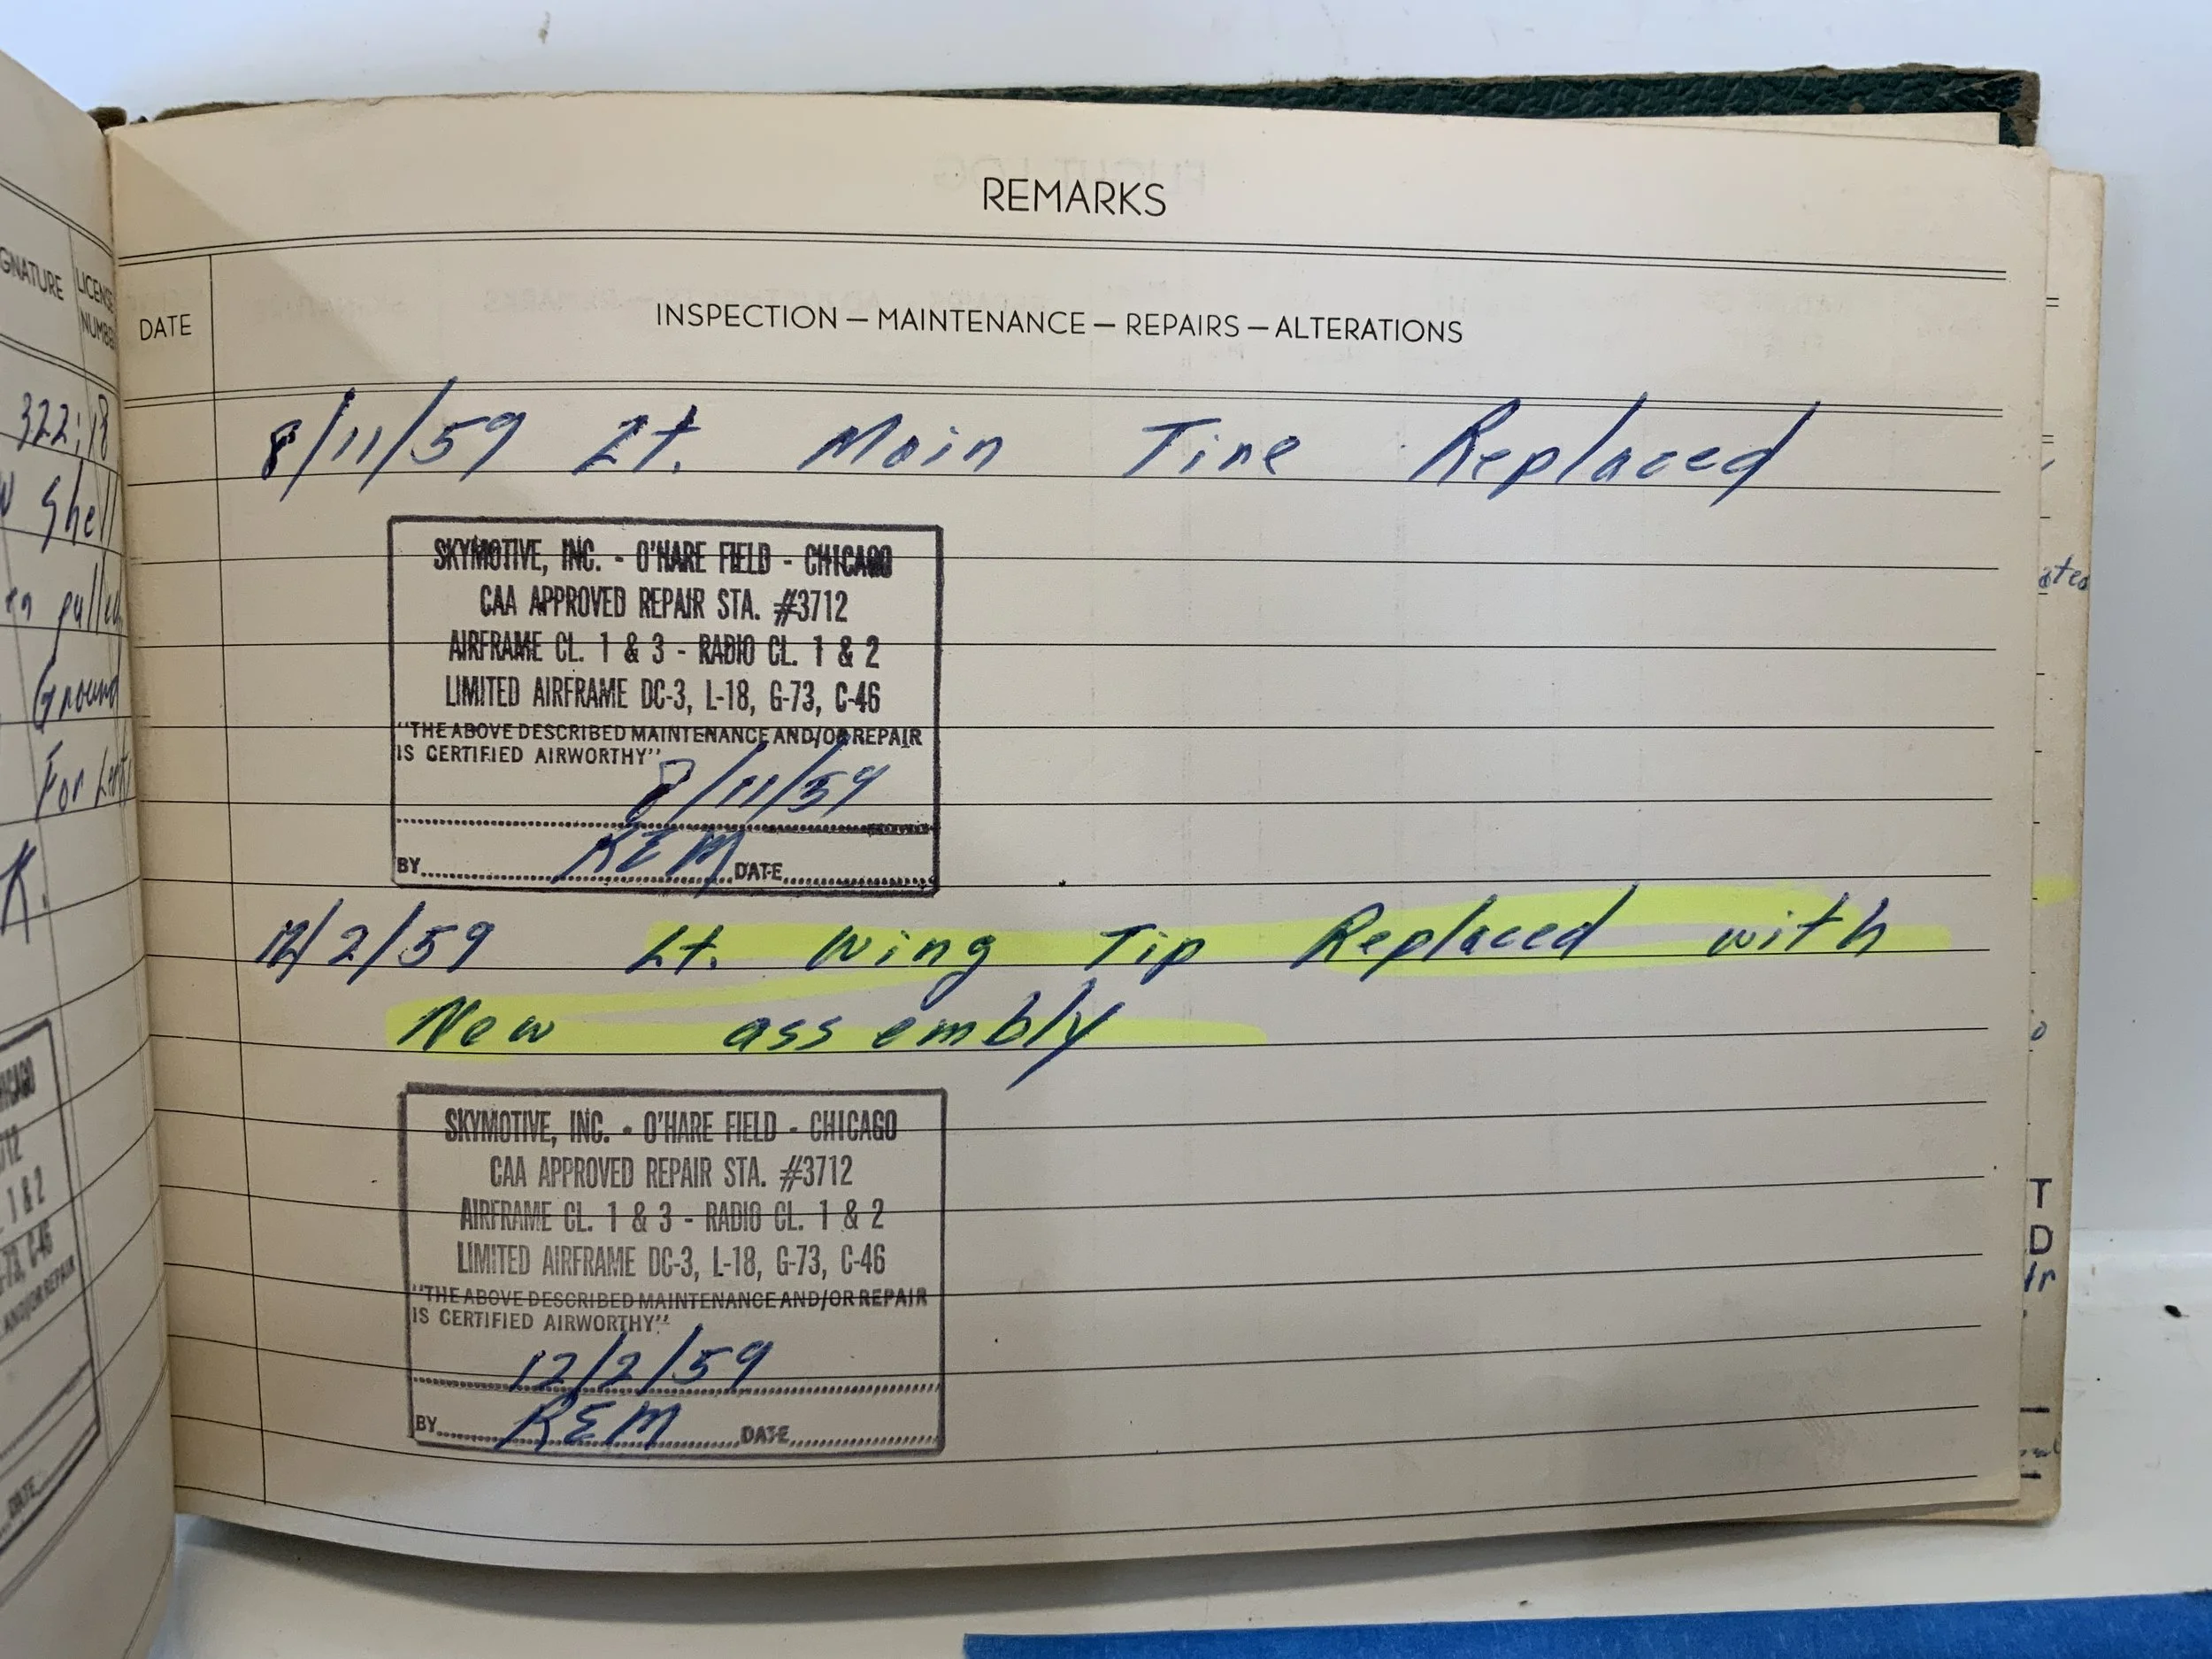 GNATURE
LICENSE
NUMBER
322;18
Shell
pulled
Ground
For Left
K.
REMARKS
DATE
INSPECTION — MAINTENANCE — REPAIRS — ALTERATIONS
8/11/59 Lt. Main Tire Replaced
SKYMOTIVE, INC. - O'HARE FIELD - CHICAGO
CAA APPROVED REPAIR STA. #3712
AIRFRAME CL. 1 & 3 - RADIO CL. 1 & 2
LIMITED AIRFRAME DC-3, L-18, G-73, C-46
"THE ABOVE DESCRIBED MAINTENANCE AND/OR REPAIR
IS CERTIFIED AIRWORTHY"
8/11/59
BY REM DATE
12/2/59 Lt. Wing Tip Replaced with
New assembly
SKYMOTIVE, INC. - O'HARE FIELD - CHICAGO
CAA APPROVED REPAIR STA. #3712
AIRFRAME CL. 1 & 3 - RADIO CL. 1 & 2
LIMITED AIRFRAME DC-3, L-18, G-73, C-46
"THE ABOVE DESCRIBED MAINTENANCE AND/OR REPAIR
IS CERTIFIED AIRWORTHY"
12/2/59
BY REM DATE